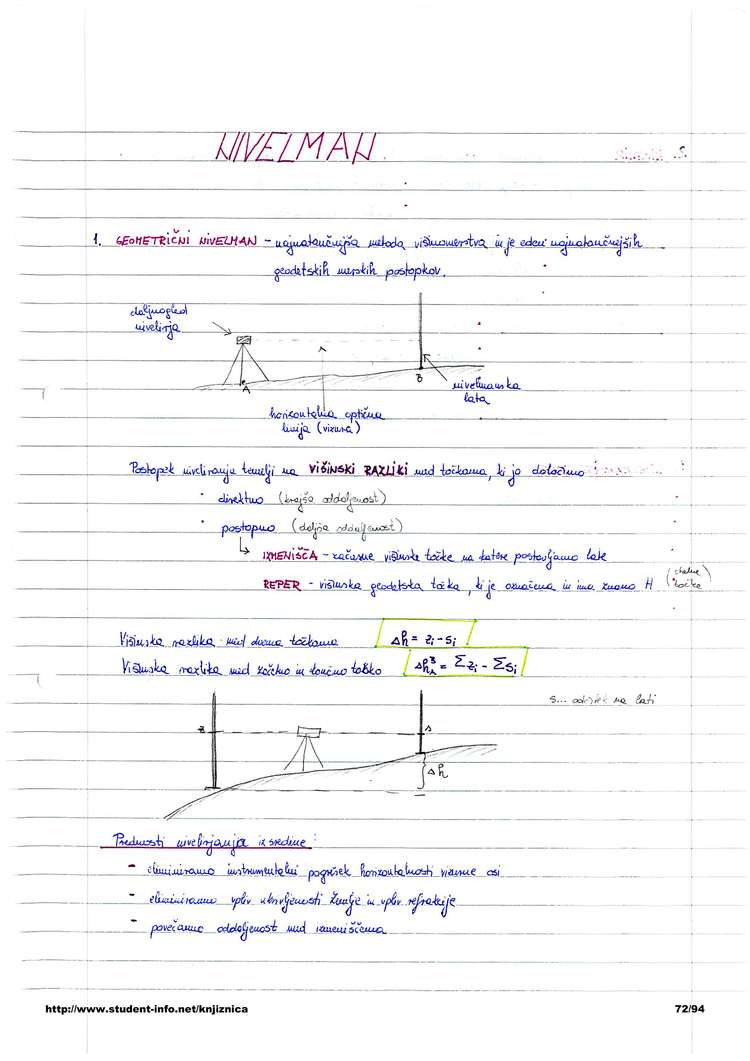 NIVELMAN
1. GEOMETRIČNI NIVELMAN - najnatančnejša metoda višinomerstva in je eden najnatančnejših
geodetskih merskih postopkov.
daljnogled
nivelirja
A
B
nivelmanska
lata
horizontalna optična
linija (vizura)
Postopek niveliranja temelji na VIŠINSKI RAZLIKI med točkama, ki jo določimo
• direktno (krajša oddaljenost)
• postopno (daljša oddaljenost)
IZMENIŠČA - začasne višinske točke na katere postavljamo late
REPER - višinska geodetska točka, ki je označena in ima znano H (stalne točke)
Višinska razlika med dvema točkama Δh = zi - si
Višinska razlika med začetno in končno točko ΔhAB = Σzi - Σsi
s... odčitek na lati
Z
s
Δh
Prednosti niveliranja iz sredine:
- eliminiramo instrumentalni pogrešek horizontalnosti vizurne osi
- eliminiramo vpliv ukrivljenosti Zemlje in vpliv refrakcije
- povečamo oddaljenost med izmeniščema
http://www.student-info.net/knjiznica
72/94